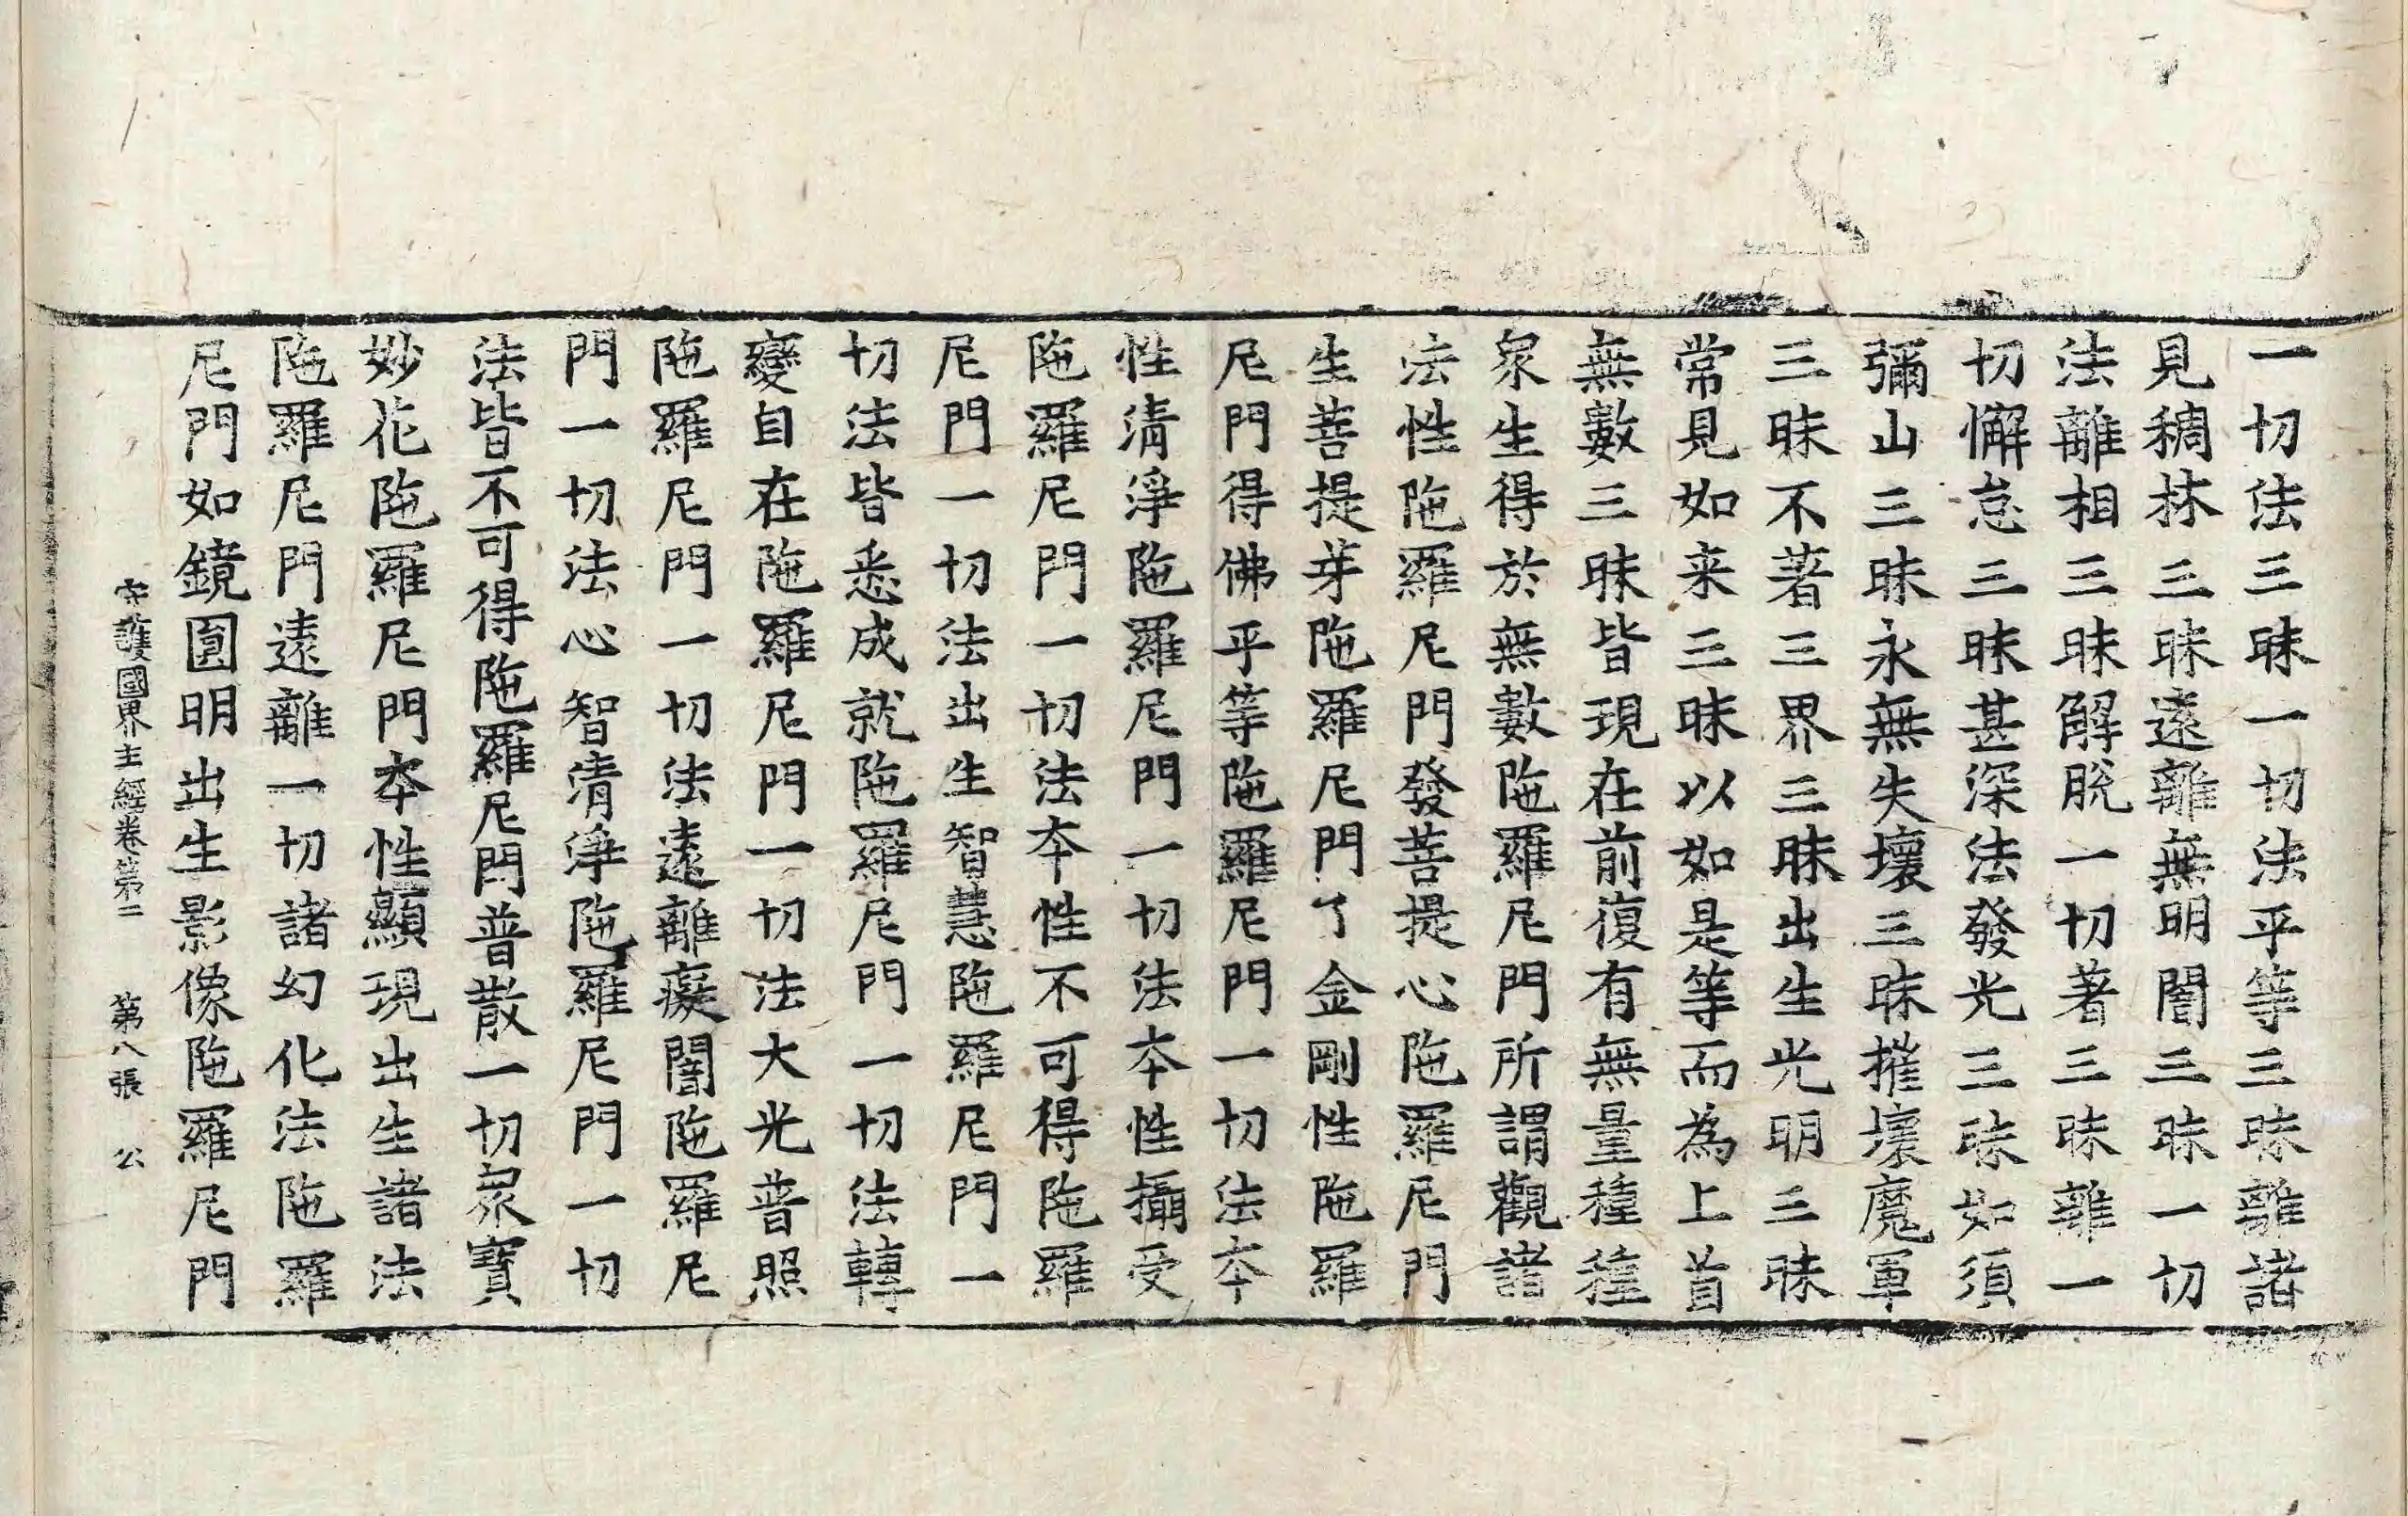 一切法三昧一切法平等三昧離諸
見稠林三昧遠離無明闇三昧一切
法離相三昧解脫一切著三昧離一
切懈怠三昧甚深法發光三昧如須
彌山三昧永無失壞三昧摧壞魔軍
三昧不著三界三昧出生光明三昧
常見如来三昧以如是等而為上首
無數三昧皆現在前復有無量種種
衆生得於無數陁羅尼門所謂觀諸
法性陁羅尼門發菩提心陁羅尼門
生菩提芽陁羅尼門了金剛性陁羅
尼門得佛平等陁羅尼門一切法本
性清淨陁羅尼門一切法本性攝受
陁羅尼門一切法本性不可得陁羅
尼門一切法出生智慧陁羅尼門一
切法皆悉成就陁羅尼門一切法轉
變自在陁羅尼門一切法大光普照
陁羅尼門一切法遠離癡闇陁羅尼
門一切法心智清淨陁羅尼門一切
法皆不可得陁羅尼門普散一切衆寶
妙花陁羅尼門本性顯現出生諸法
陁羅尼門遠離一切諸幻化法陁羅
尼門如鏡圓明出生影像陁羅尼門
守護國界主經卷第二 第八張 公